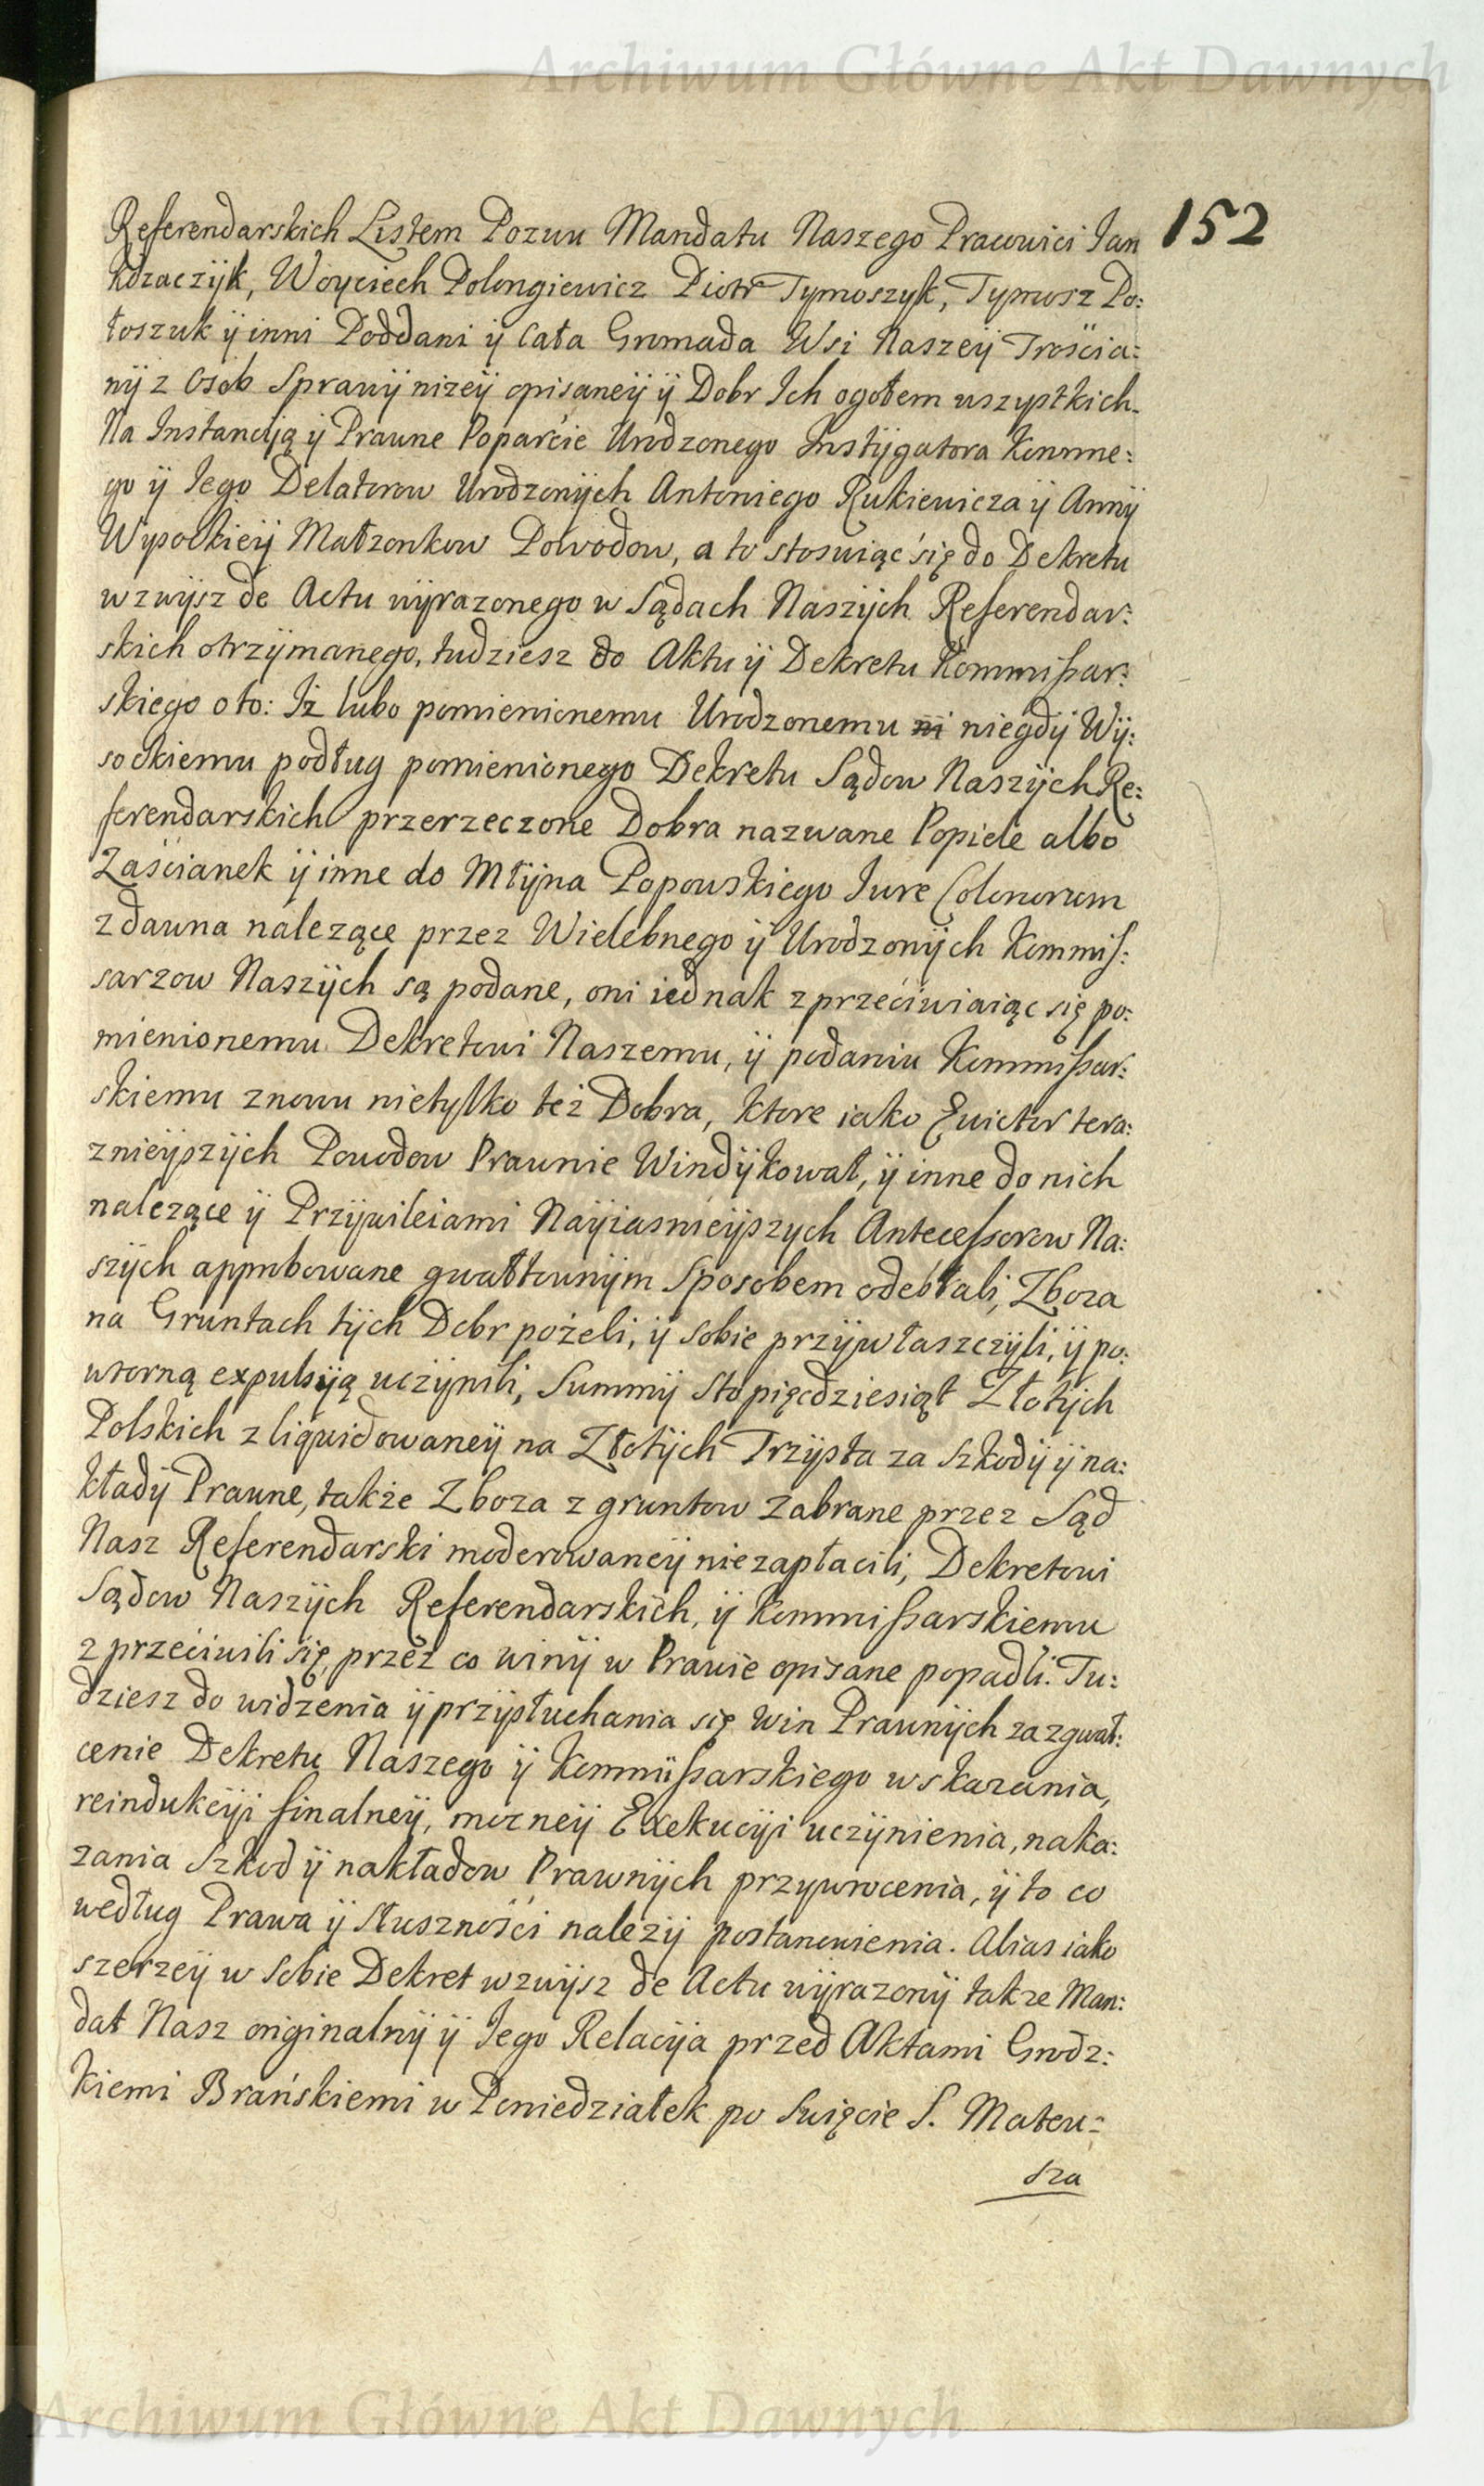 Archiwum Główne Akt Dawnych
152
Referendarskich Listem Pozwu Mandatu Naszego Pracowici Jan
Kozaczÿk, Woyciech Dolongiewicz Piotr Tymoszyk, Tymosz Po:
łoszuk ÿ inni Poddani ÿ Cała Gromada Wsi Naszeÿ Trościa:
nÿ z Osob Sprawÿ nizeÿ opisaneÿ ÿ Dobr Ich ogołem wszystkich.
Na Instancÿą ÿ Prawne Poparcie Urodzonego Instÿgatora Koronne:
go ÿ Iego Delatorow Urodzonÿch Antoniego Rukiewicza ÿ Annÿ
Wysockieÿ Małzonkow Powodow, a to stosuiąc się do Dekretu
wzwÿsz de Actu wÿrazonego w Sądach Naszÿch Referendar:
skich otrzÿmanego, tudziesz do Aktu ÿ Dekretu Kommissar:
skiego oto: Iż lubo pomienionemu Urodzonemu ni niegdÿ Wÿ:
sockiemu podług pomienionego Dekretu Sądow Naszÿch Re:
ferendarskich przerzeczone Dobra nazwane Popiele albo
Zaścianek ÿ inne do Młÿna Popowskiego Iure Colonorum
zdawna nalezące przez Wielebnego ÿ Urodzonÿch Kommis:
sarzow Naszÿch są podane, oni iednak zprzeciwiaiąc się po:
mienionemu Dekretowi Naszemu, ÿ podaniu Kommissar:
skiemu znowu nietylko też Dobra, ktore iako Ewictor tera:
znieÿszÿch Powodow Prawnie Windÿkował, ÿ inne do nich
nalezące ÿ Przÿwileiami Naÿiasnieÿszych Antecessorow Na:
szÿch approbowane gwałtownÿm Sposobem odebrali, Zboza
na Gruntach tÿch Dobr pożeli, ÿ sobie przÿwłaszczÿli, ÿ po:
wtorną expulsÿą uczÿnili, Summÿ Sto pięcdziesiąt Złotÿch
Polskich zliquidowaneÿ na Złotÿch Trzÿsta za Szkodÿ ÿ na:
kładÿ Prawne, także Zboza z gruntow zabrane przez Sąd
Nasz Referendarski moderowaneÿ niezapłacili, Dekretowi
Sądow Naszÿch Referendarskich, ÿ Kommissarskiemu
zprzeciwili się, przez co winÿ w Prawie opisane popadli. Tu:
dziesz do widzenia ÿ przÿsłuchania się Win Prawnÿch za zgwał:
cenie Dekretu Naszego ÿ Kommissarskiego wskazania,
reindukcÿi finalneÿ, mocneÿ Exekucÿi uczÿnienia, naka:
zania Szkod ÿ nakładow Prawnÿch przywrocenia, ÿ to co
według Prawa ÿ Słuszności nalezÿ postanowienia. Alias iako
szerzeÿ w Sobie Dekret wzwÿsz de Actu wÿrazonÿ takze Man:
dat Nasz originalnÿ ÿ Iego Relacÿa przed Aktami Grodz:
kiemi Brańskiemi w Poniedziałek po Swięcie S. Mateu:
sza
Archiwum Główne Akt Dawnych